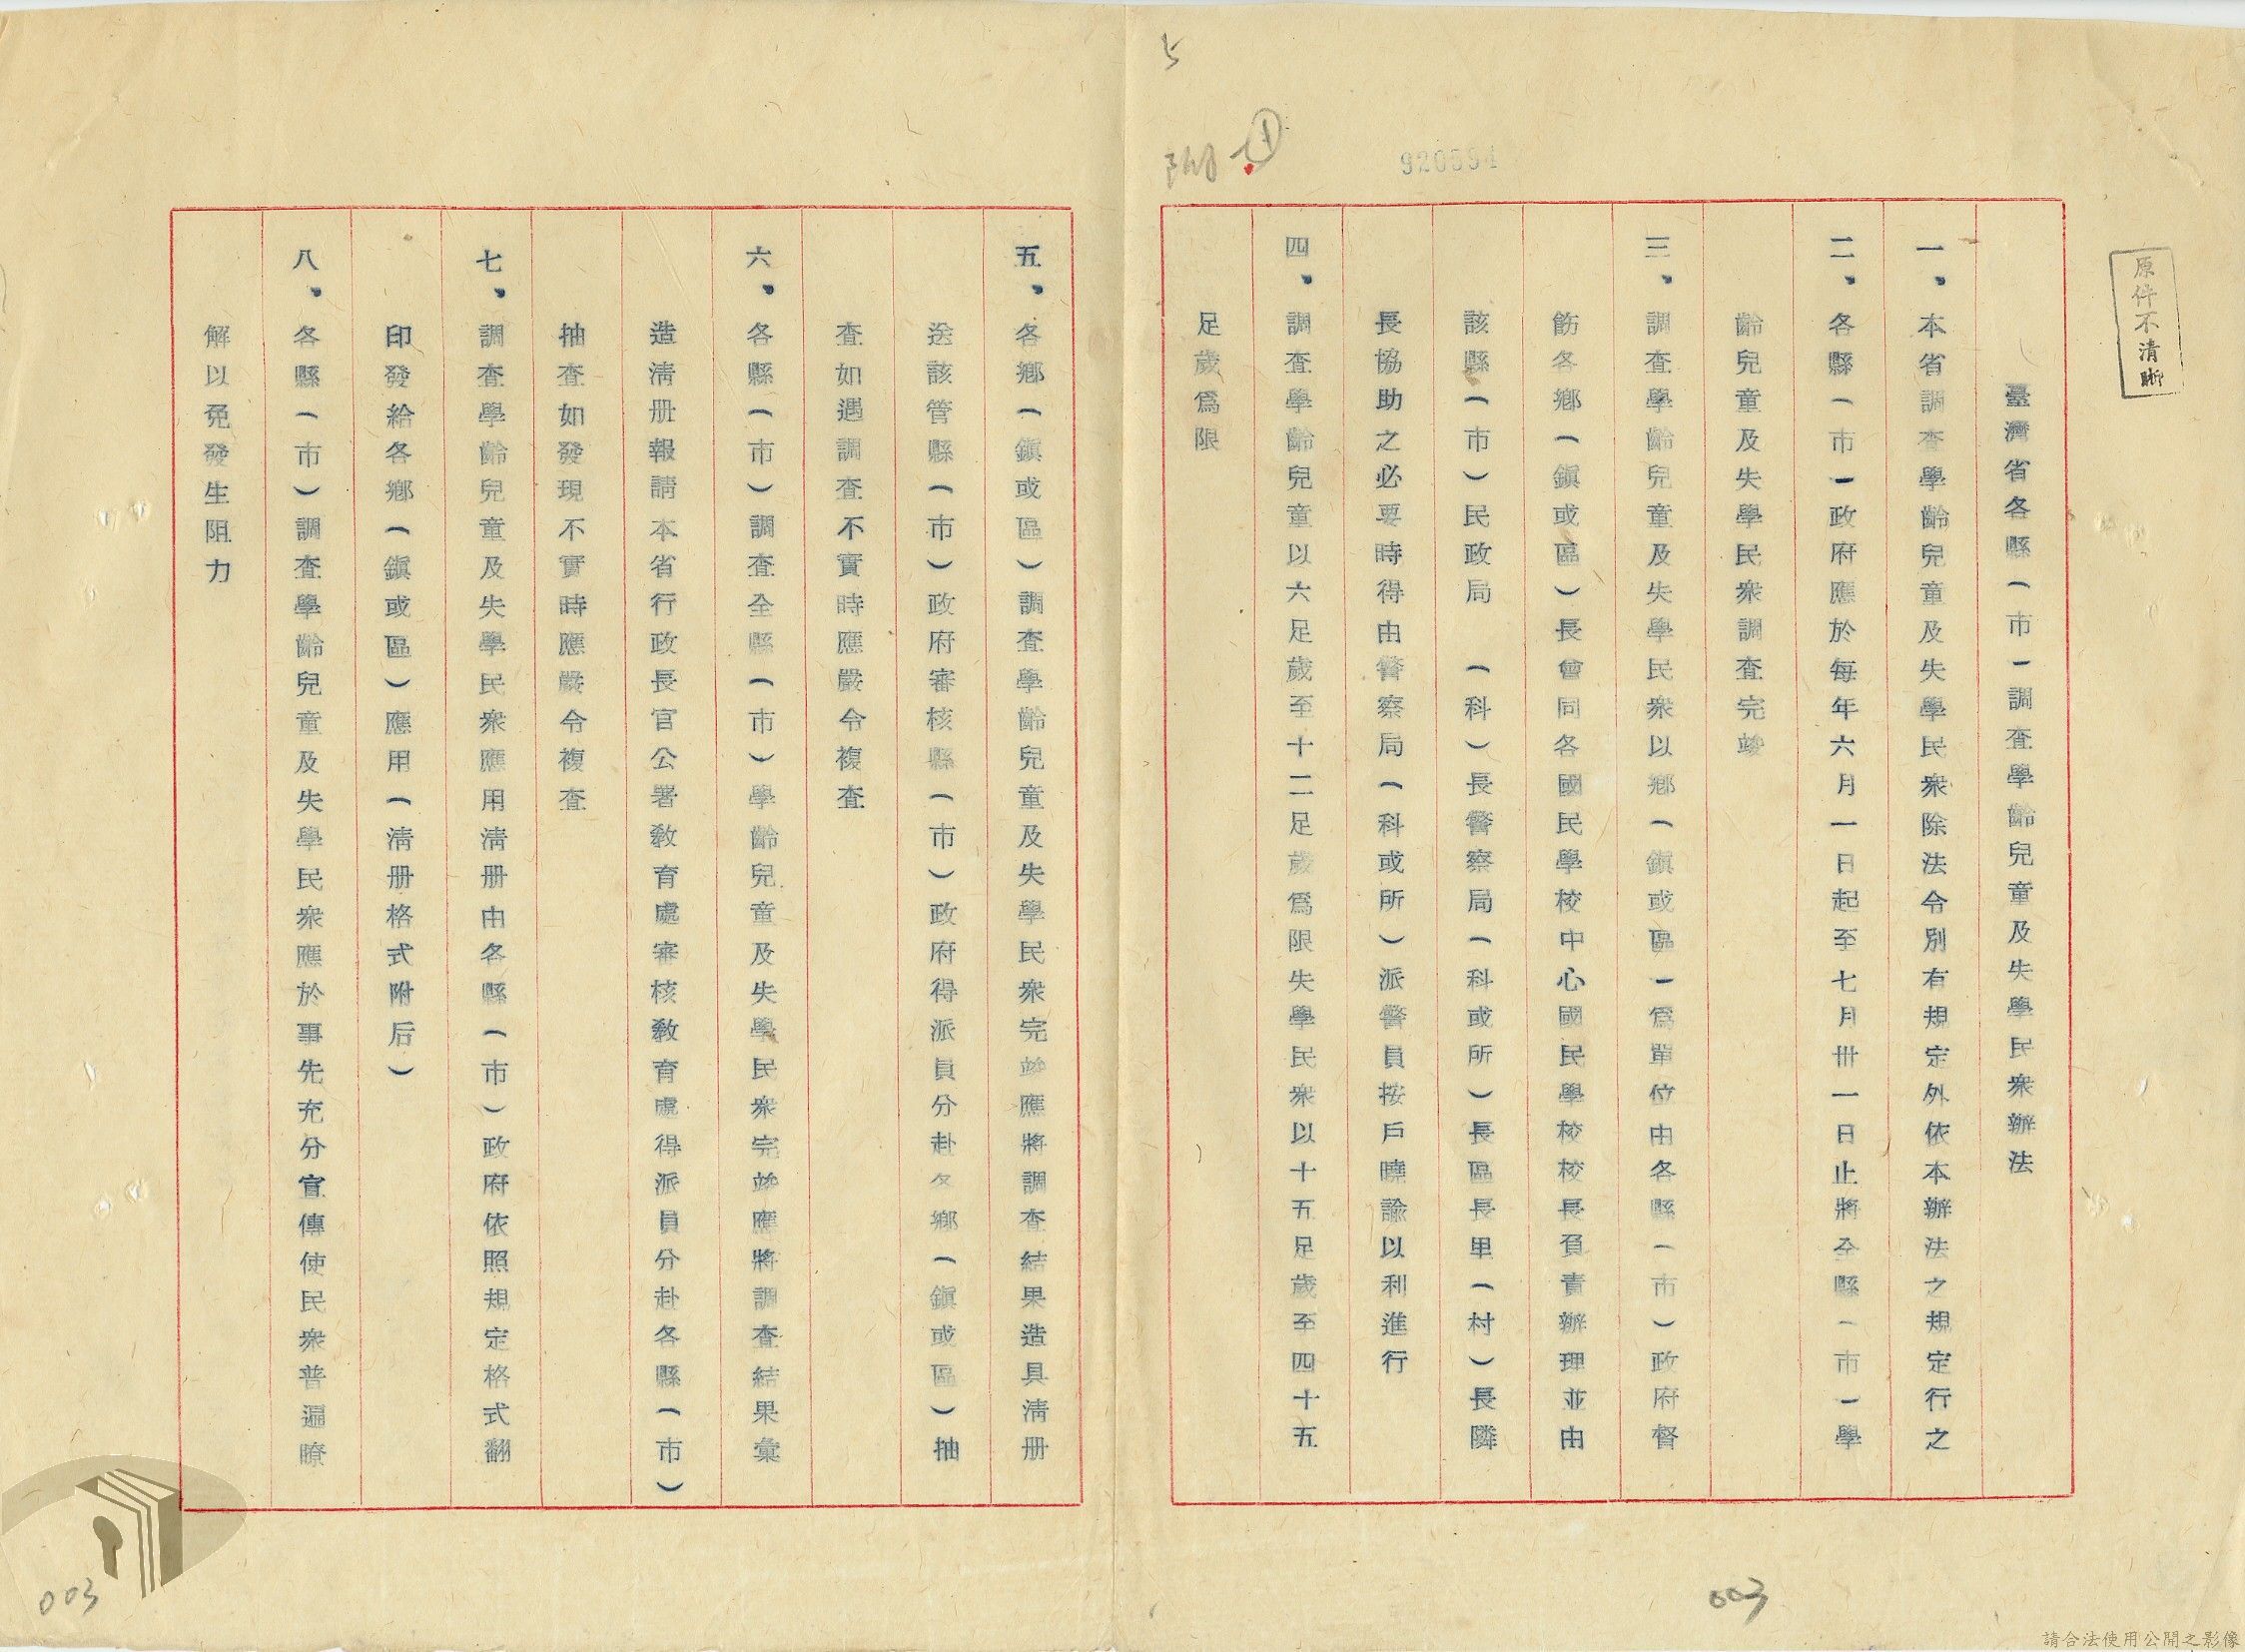 原件不清晰
臺灣省各縣(市)調查學齡兒童及失學民衆辦法
一、本省調查學齡兒童及失學民衆除法令別有規定外依本辦法之規定行之
二、各縣(市)政府應於每年六月一日起至七月卅一日止將全縣(市)學
齡兒童及失學民衆調查完竣
三、調查學齡兒童及失學民衆以鄉(鎭或區)爲單位由各縣(市)政府督
飭各鄉(鎭或區)長會同各國民學校中心國民學校校長負責辦理並由
該縣(市)民政局(科)長警察局(科或所)長區長里(村)長隣
長協助之必要時得由警察局(科或所)派警員按戶曉諭以利進行
四、調查學齡兒童以六足歲至十二足歲爲限失學民衆以十五足歲至四十五
足歲爲限
920594
附
1
5
003
五、各鄉(鎭或區)調查學齡兒童及失學民衆完竣應將調查結果造具淸册
送該管縣(市)政府審核縣(市)政府得派員分赴各鄉(鎭或區)抽
查如遇調查不實時應嚴令複查
六、各縣(市)調查全縣(市)學齡兒童及失學民衆完竣應將調查結果彙
造淸册報請本省行政長官公署敎育處審核敎育處得派員分赴各縣(市)
抽查如發現不實時應嚴令複查
七、調查學齡兒童及失學民衆應用淸册由各縣(市)政府依照規定格式翻
印發給各鄉(鎭或區)應用(淸册格式附后)
八、各縣(市)調查學齡兒童及失學民衆應於事先充分宣傳使民衆普遍瞭
解以免發生阻力
003
請合法使用公開之影像